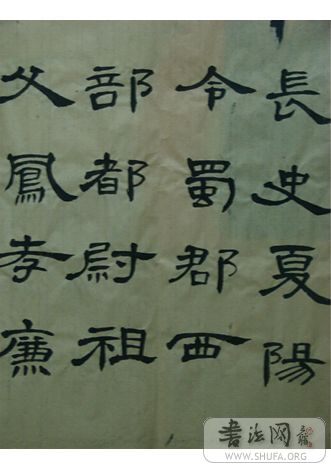 長史夏陽
令蜀郡西
部都尉祖
父鳳孝廉
書法网
WWW.SHUFA.ORG